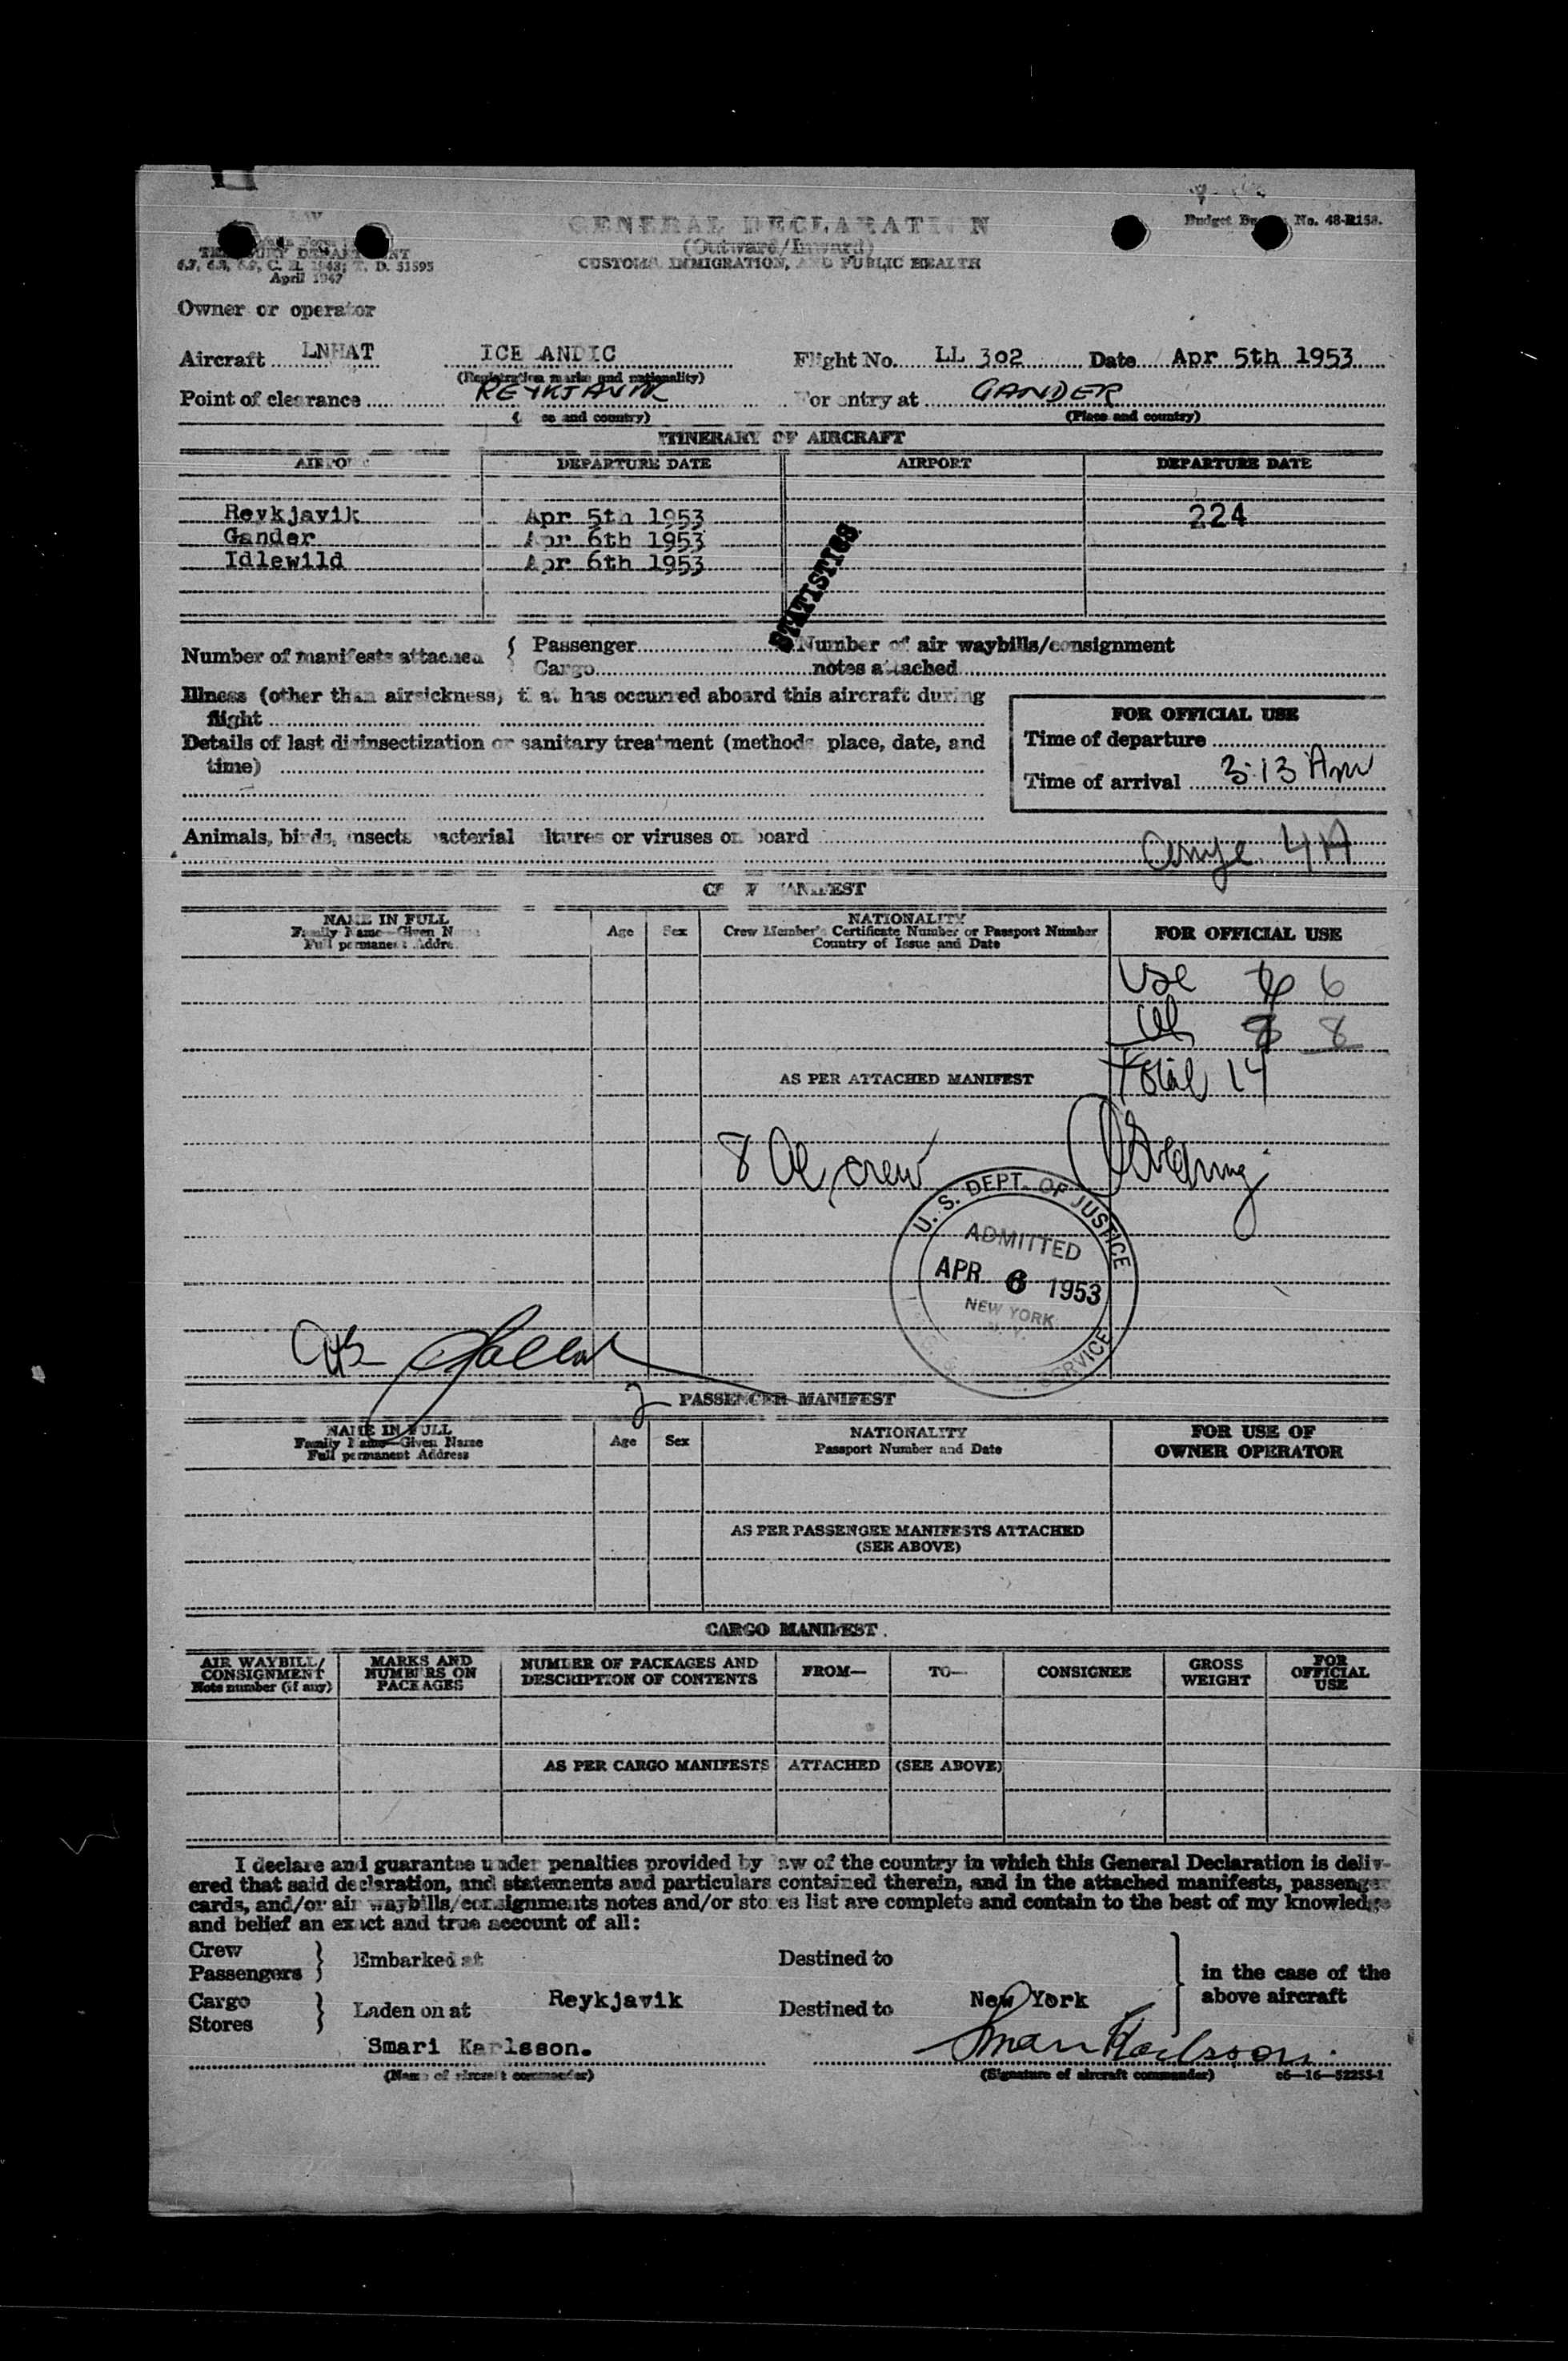 GENERAL DECLARATION
(Outward/Inward)
CUSTOMS, IMMIGRATION, AND PUBLIC HEALTH
Budget Bureau No. 48-R158.
TREASURY DEPARTMENT
6.7, 6.8, 6.9, C. R. 1943; T. D. 51595
April 1947
Owner or operator
Aircraft LNHAT ICELANDIC Flight No. LL 302 Date Apr 5th 1953
(Registration marks and nationality)
Point of clearance REYKJAVIK For entry at GANDER
(Place and country) (Place and country)
ITINERARY OF AIRCRAFT
AIRPORT DEPARTURE DATE AIRPORT DEPARTURE DATE
Reykjavik Apr 5th 1953 224
Gander Apr 6th 1953
Idlewild Apr 6th 1953
STATISTICS
Number of manifests attached { Passenger Number of air waybills/consignment
Cargo notes attached
Illness (other than airsickness) that has occurred aboard this aircraft during
flight
Details of last disinsectization or sanitary treatment (method, place, date, and
time)
FOR OFFICIAL USE
Time of departure
Time of arrival 3:13 Am
Animals, birds, insects, bacterial cultures or viruses on board
4A
CREW MANIFEST
NAME IN FULL Age Sex NATIONALITY FOR OFFICIAL USE
Family Name—Given Name Crew Member's Certificate Number or Passport Number
Full permanent Address Country of Issue and Date
USC 6
8
AS PER ATTACHED MANIFEST Total 14
8 crew
U. S. DEPT. OF JUSTICE
ADMITTED
APR 6 1953
NEW YORK
N. Y.
SERVICE
2 PASSENGER MANIFEST
NAME IN FULL Age Sex NATIONALITY FOR USE OF
Family Name—Given Name Passport Number and Date OWNER OPERATOR
Full permanent Address
AS PER PASSENGER MANIFESTS ATTACHED
(SEE ABOVE)
CARGO MANIFEST
AIR WAYBILL/ MARKS AND NUMBER OF PACKAGES AND FROM— TO— CONSIGNEE GROSS FOR
CONSIGNMENT NUMBERS ON DESCRIPTION OF CONTENTS WEIGHT OFFICIAL
Note number (if any) PACKAGES USE
AS PER CARGO MANIFESTS ATTACHED (SEE ABOVE)
I declare and guarantee under penalties provided by law of the country in which this General Declaration is deliv-
ered that said declaration, and statements and particulars contained therein, and in the attached manifests, passenger
cards, and/or air waybills/consignments notes and/or stores list are complete and contain to the best of my knowledge
and belief an exact and true account of all:
Crew
Passengers } Embarked at Destined to } in the case of the
Cargo above aircraft
Stores } Laden on at Reykjavik Destined to New York
Smari Karlsson. Smari Karlsson
(Name of aircraft commander) (Signature of aircraft commander) c6—16—52255-1